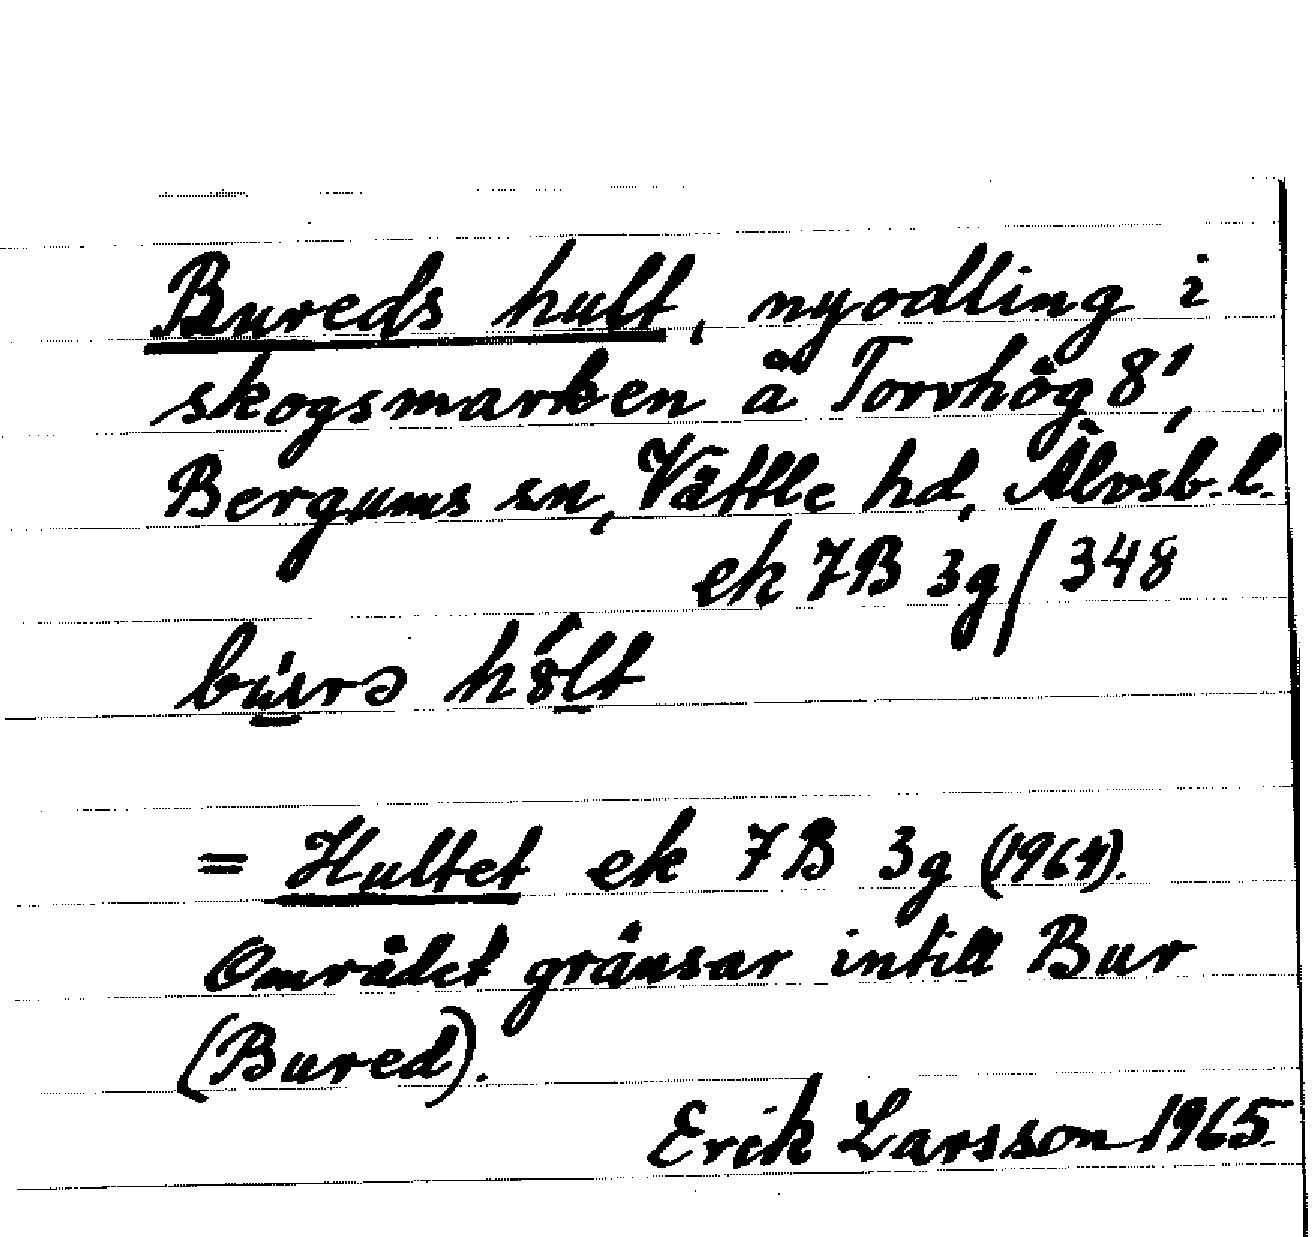 Bureds hult, nyodling i
skogsmarken å Torvhög 8¹,
Bergums sn, Vättle hd, Älvsb. l.
ek 7B 3g/348
hult
= Hultet ek 7B 3g (1964).
Området gränsar intill Bur
(Bured).
Erik Larsson 1965.